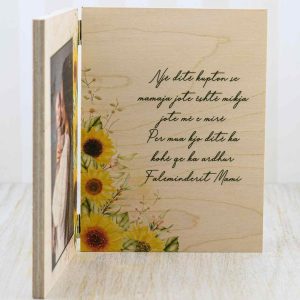 Një ditë kupton se
mamaja jote është mikja
jote më e mirë
Per mua kjo ditë ka
kohë qe ka ardhur
Faleminderit Mami